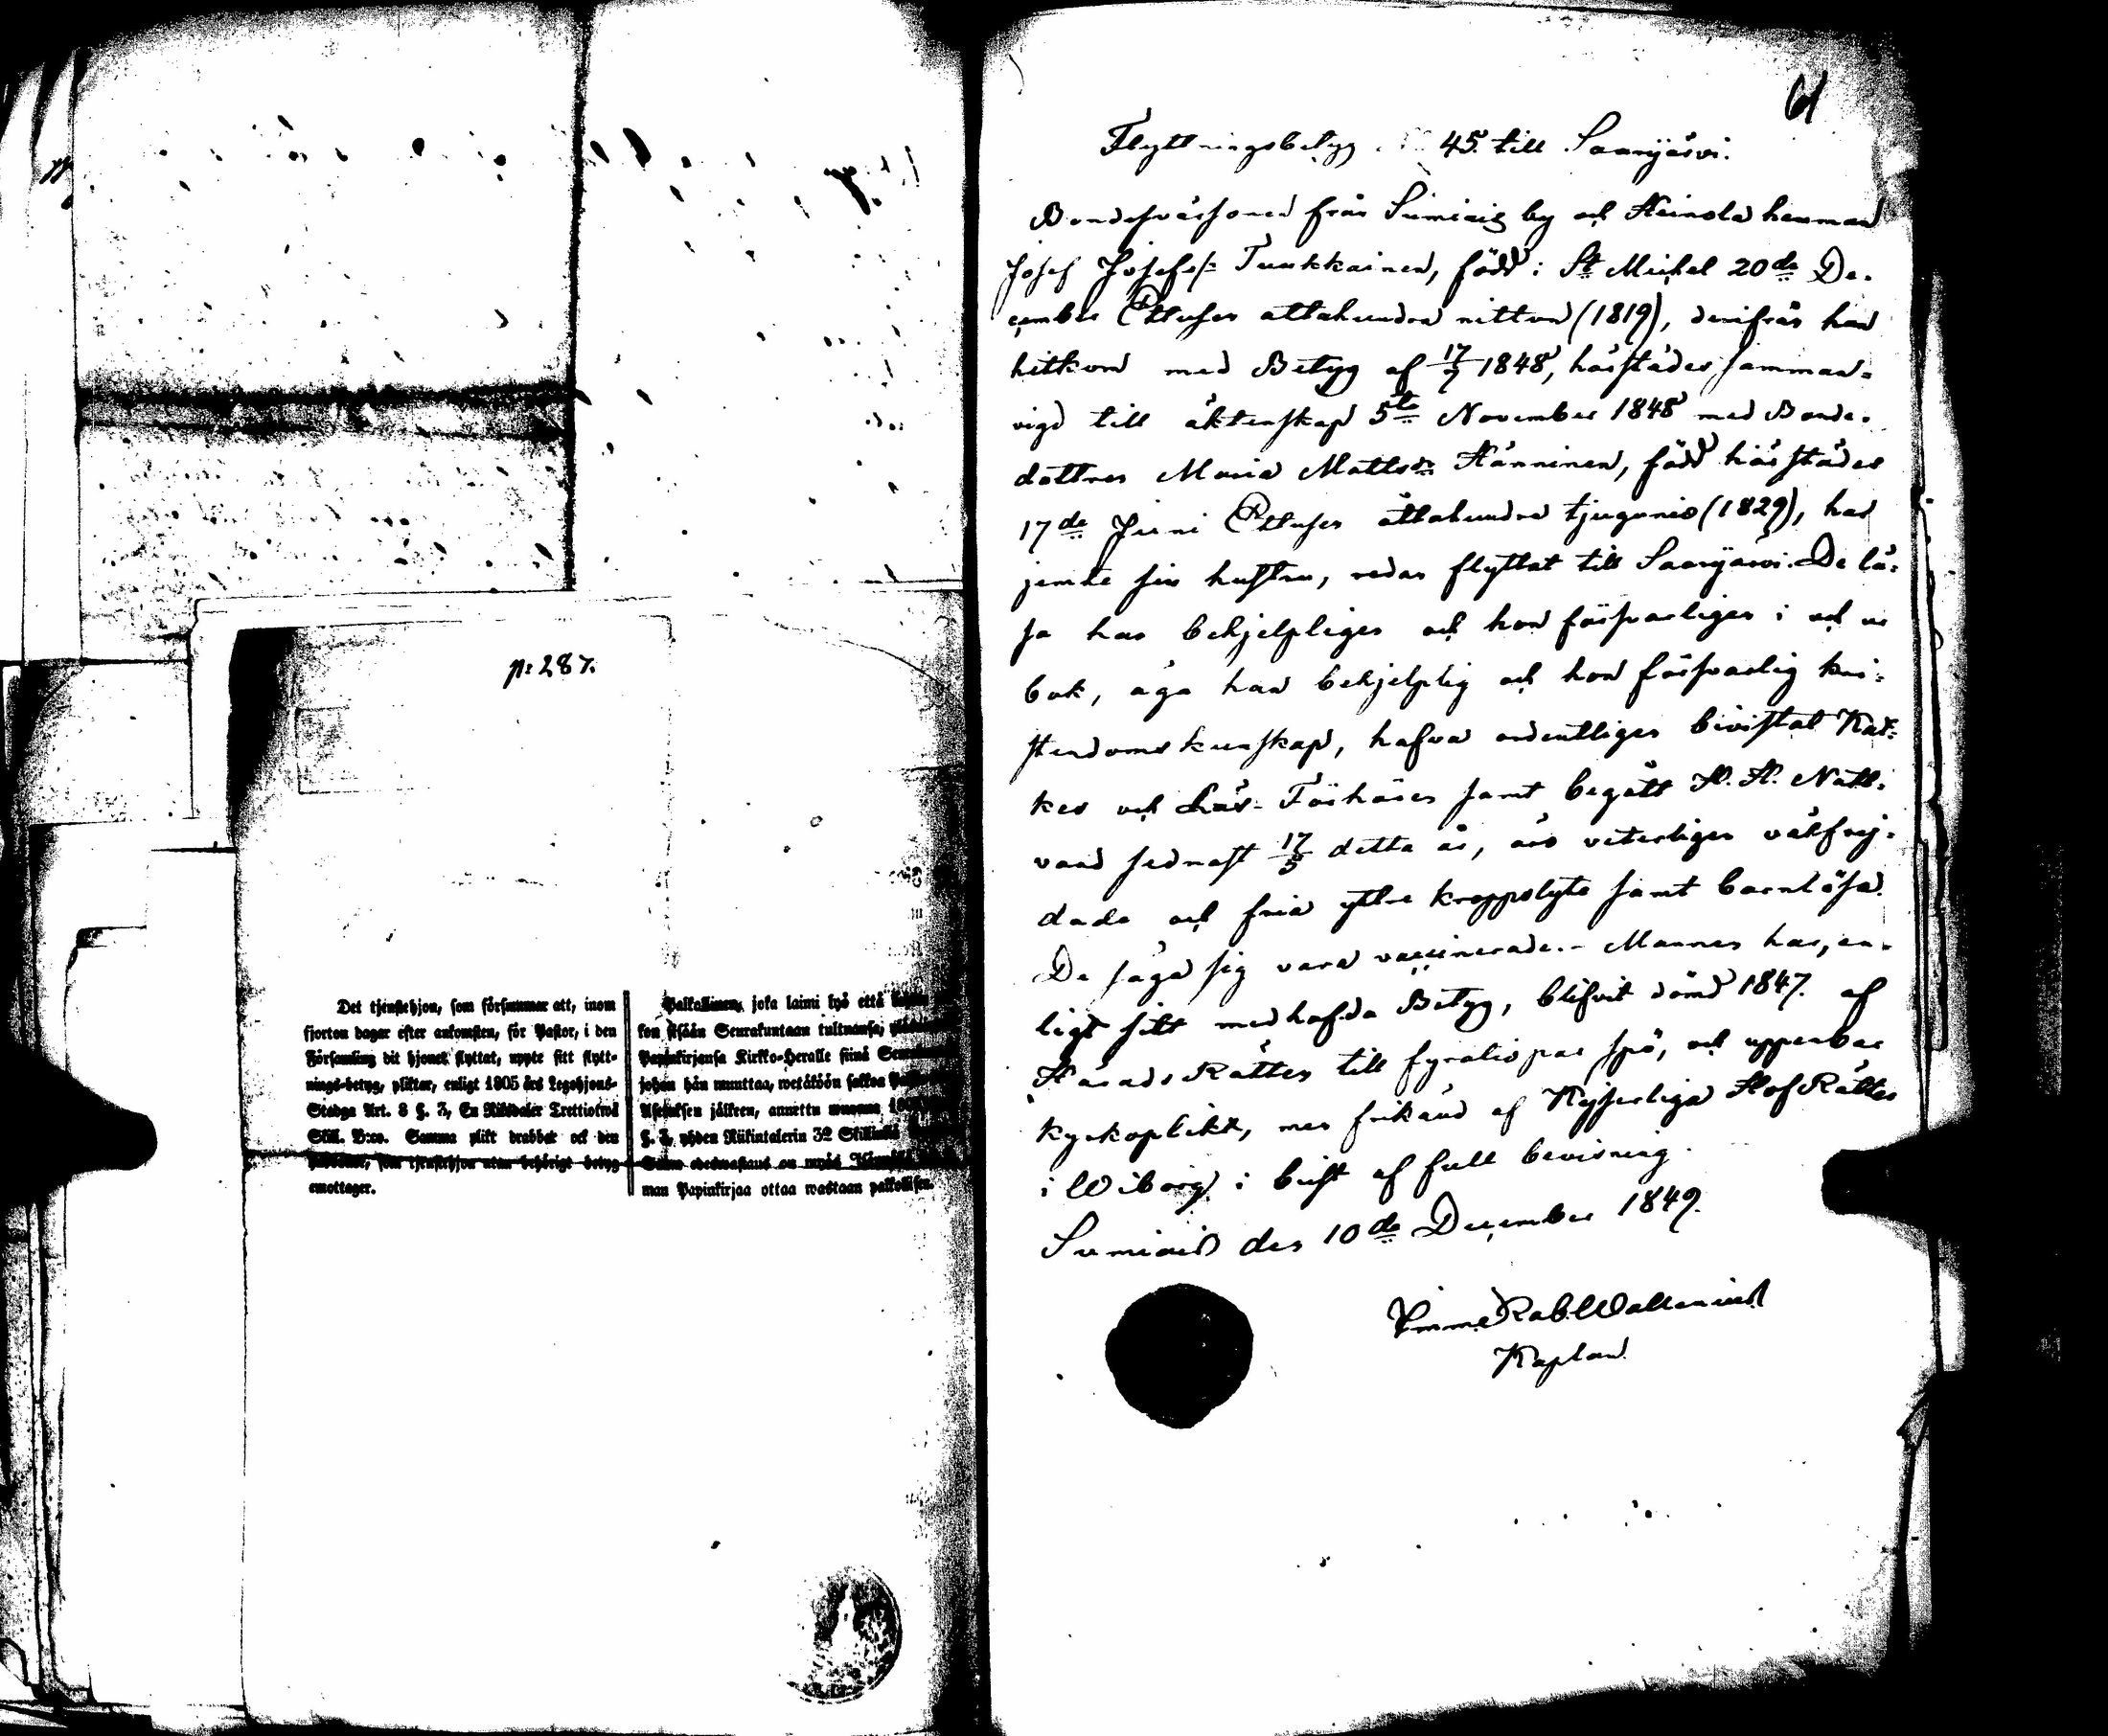 p: 287.
Det tjenstehjon, som försummar att, inom
fjorton dagar efter ankomsten, för Pastor, i den
Församling dit hjonet flyttat, uppte sitt flytt-
nings-betyg, pliktar, enligt 1805 års Legohjons-
Stadga Art. 8 §. 3, En Riksdaler Trettiotwå
Skill. B:co. Samma plikt drabbar ock den
som tjenstehjon utan behörigt betyg
emottager.
Palkollinen, joka laimi lyö että
kon sisään Seurakuntaan tultuansa,
Papinkirjansa Kirkko-Herralle siinä
johon hän muuttaa, wetäköön sakkoa
Asetuksen jälkeen, annettu wuonna
§. 3. yhden Riikintalerin 32 Skillinkiä
on myös
man Papinkirjaa ottaa wastaan palkollisen.
61
Flyttningsbetyg N:o 45. till Saarijärvi.
Bondesonen från Sumiais by och Heinola hemman
Josef Josefs/: Tuukkainen, född i S:t Michel 20de De-
cember Ettusen attahundra nitton (1819), derifrån han
hitkom med Betyg af 17/7 1848, härstädes samman-
vigd till äktenskap 5te November 1848 med Bonde-
dottren Maria Mattsdr Hänninen, född härstädes
17de Juni Ettusen åttahundra tjugunio (1829), har
jemte sin hustru, redan flyttat till Saarijärvi. De lä-
sa han behjelpligen och hon försvarligen i och ur
bok, äga han behjelplig och hon försvarlig kri-
stendomskunskap, hafva ordentligen bivistat Kat-
kes och Läs-Förhören samt begått H. H. Natt-
vard sednast 17/5 detta år, äro veterligen välfrej-
dade och fria yttre kroppslyte samt barnlösa.
De säga sig vara vaccinerade. - Mannen har, en-
ligt sitt medhafda Betyg, blifvit dömd 1847. af
HäradsRätten till fyratio par spö, och uppenbar
kyrkoplikt, men frikänd af Kejserliga HofRätten
i Wiborg i brist af full bevisning.
Sumiais den 10de December 1849.
Kaplan.